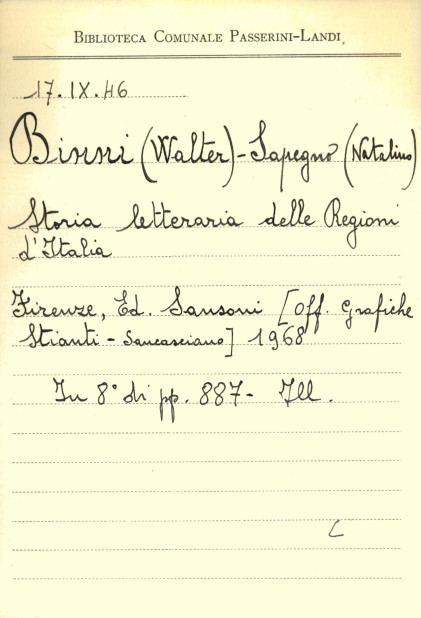 BIBLIOTECA COMUNALE PASSERINI-LANDI
17.IX.46
Binni (Walter) - Sapegno (Natalino)
Storia letteraria delle Regioni
d'Italia
Firenze, Ed. Sansoni [Off. Grafiche
Stianti - Sancasciano] 1968
In 8° di pp. 887 - Ill.
L